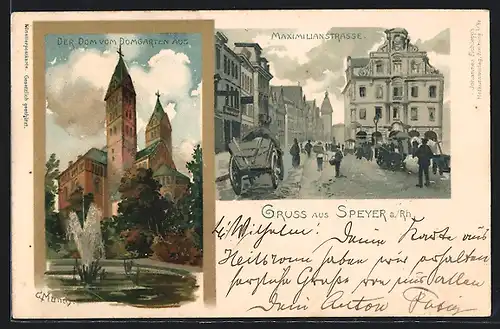 DER DOM VOM DOMGARTEN AUS.
MAXIMILIANSTRASSE.
Künstlerpostkarte. Gesetzlich geschützt.
GRUSS AUS SPEYER a/Rh.
C. Münch.
L. Wilhelm! Deine Karte aus
Heilsbronn haben wir erhalten
herzliche Grüße von uns allen
Dein Anton